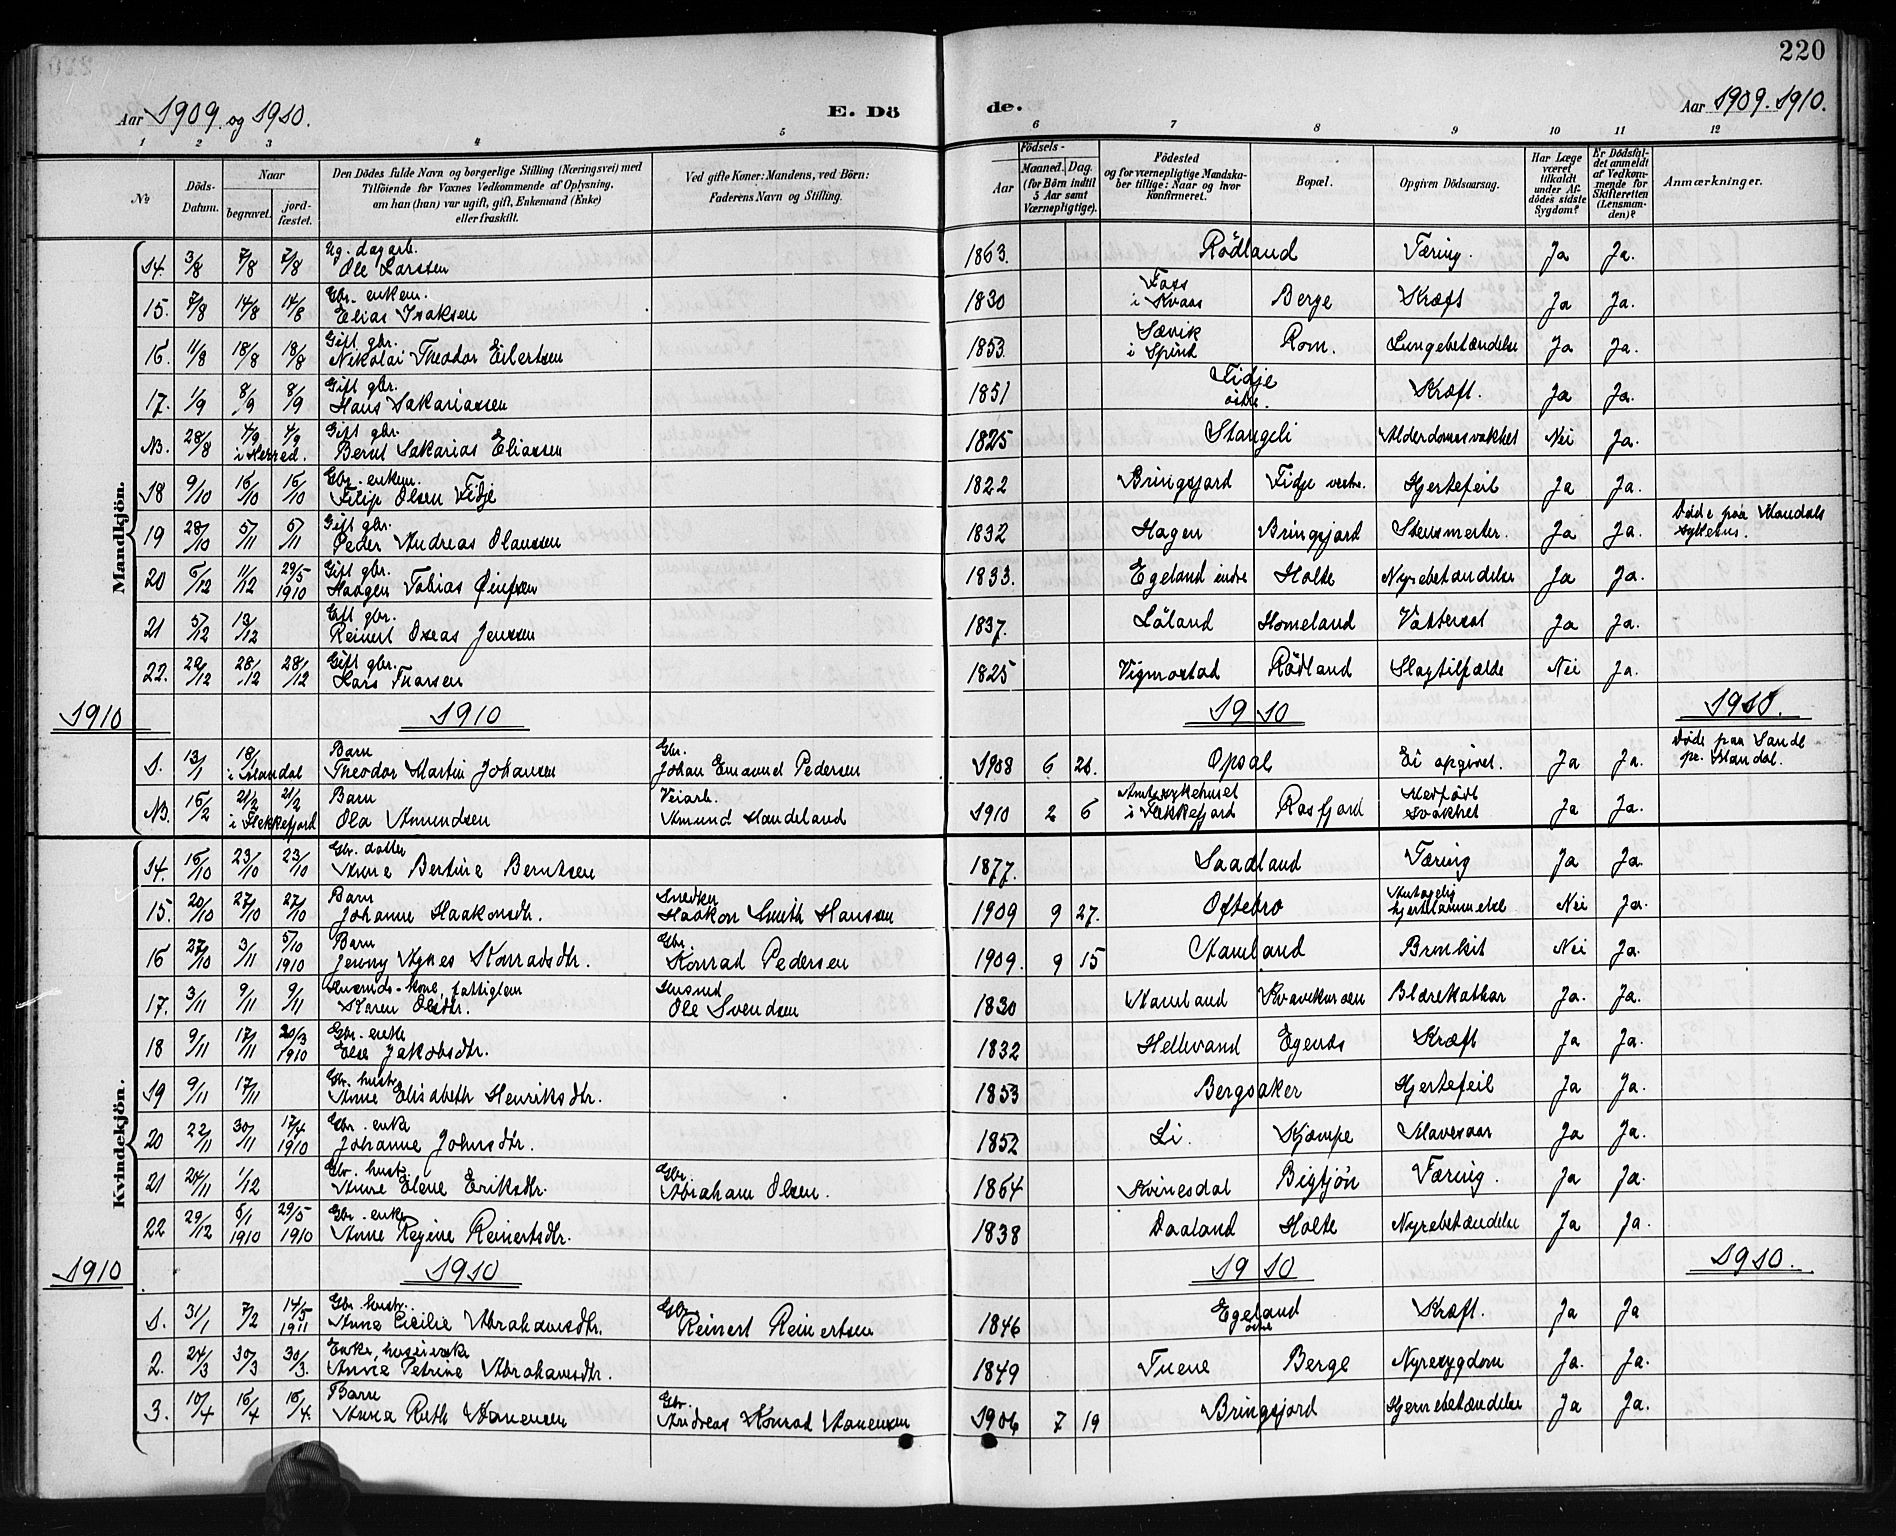 220
Aar 1909 og 1910.
E. Dö
de.
Aar 1909. 1910.
1 2 3 4 5 6 7 8 9 10 11 12
№
Döds-Datum.
Naar
begravet.
jord-fæstet.
Den Dödes fulde Navn og borgerlige Stilling (Næringsvei) med
Tilföiende for Voxnes Vedkommende af Oplysning,
om han (hun) var ugift, gift, Enkemand (Enke)
eller fraskilt.
Ved gifte Koner: Mandens, ved Börn:
Faderens Navn og Stilling.
Födsels-
Aar
Maaned.
Dag.
(for Börn indtil
5 Aar samt
Værnepligtige).
Födested
og for værnepligtige Mandska-
ber tillige: Naar og hvor
konfirmeret.
Bopæl.
Opgiven Dödsaarsag.
Har Læge
været
tilkaldt
under Af-
dödes sidste
Sygdom?
Er Dödsfal-
det anmeldt
af Vedkom-
mende for
Skifteretten
(Lensman-
den)?
Anmærkninger.
Mandkjön.
14. 3/8 7/8 7/8 Ug. dagarb. Ole Larssen 1863. Rödland Tæring. Ja Ja.
15. 7/8 14/8 14/8 Gbr. enkem. Elias Isaksen 1830 Foss i Kvaas Berge Kræft Ja Ja.
16 11/8 18/8 18/8 Gift gbr. Nikolai Theodor Eilertsen 1853. Sævik i Spind Rom. Lungebetændelse Ja Ja.
17. 1/9 8/9 8/9 Gift gbr. Hans Sakariassen 1851 Fidje östre. Kræft. Ja Ja.
NB. 28/8 4/9 4/9 i Herred. Gift gbr. Bernt Sakarias Eliassen 1825 Stangeli Alderdomssvakhet Nei Ja.
18 9/10 16/10 16/10 Gbr. enkem. Filip Olsen Fidje 1822 Bringsjord Fidje vestre. Hjertefeil Ja Ja.
19 28/10 5/11 5/11 Gift gbr. Peder Andreas Olaussen 1832 Hagen Bringsjord Stensmerter. Ja Ja. Döde paa Mandals sykehus.
20 6/12 11/12 29/5 1910 Gift gbr. Haagen Tobias 1833. Egeland indre Holte Nyrebetændelse Ja Ja.
21 5/12 13/12 Gift gbr. Reinert Oseas Jenssen 1837. Löland Homeland Vattersot Ja Ja.
22. 20/12 28/12 28/12 Gift gbr. Hans Tharsen 1825 Vigmostad Rödland Slagtilfælde Nei Ja.
1910 1910 1910 1910.
1. 13/1 18/1 i Mandal Barn Theodor Martin Johansen Gbr. Johan Emanuel Pedersen 1908 6 26. Opsal Ei opgivet. Ja Ja. Döde paa Sande pr. Mandal.
NB. 16/2 21/2 21/2 i Flekkefjord Barn Ola Amundsen Veiarb. Amund Handeland 1910 2 6 Amtssykehuset i Flekkefjord Rosfjord Medfödt svakhet Ja Ja.
Kvindekjön.
14. 16/10 23/10 23/10 Gbr. datter Anne Bertine Berntsen 1877. Saadland Tæring Ja Ja.
15. 20/10 27/10 27/10 Barn Johanne Haakonsdtr. Snedker Haakon Smith Hanssen 1909 9 27. Oftebro Antagelig hjertelammelse Nei Ja.
16 27/10 3/11 5/10 1910 Barn Jenny Agnes Konradsdtr. Gbr. Konrad Pedersen 1909. 9 15 Aamland Bronkit Nei Ja.
17. 3/11 9/11 9/11 Husmds-kone, fattiglem Karen Olsdtr. Husmd Ole Svendsen 1830 Aamland Kvavikmoen Blærekathar Ja. Ja.
18 9/11 17/11 20/3 1910 Gbr. enke Else Jakobsdtr. 1832 Hellevand Egenes Kræft Ja Ja.
19 9/11 17/11 Gbr. hustr. Anne Elisabeth Henriksdtr. 1853 Bergsaker Hjertefeil Ja Ja.
20 22/11 30/11 17/4 1910 Gbr. enke Johanne Johnsdtr. 1852 Li. Kjæmpe Mavesaar Ja Ja.
21 24/11 1/12 Gbr. hustr. Anne Elene Eriksdtr. Gbr. Abraham Olsen. 1864 Kvinesdal Bigtjön Tæring. Ja Ja.
22 29/12 6/1 1910 29/5 1910 Gbr. enke Anne Regine Reinertsdtr. 1838 Daaland Holte Nyrebetændelse Ja Ja.
1910 1910 1910 1910.
1. 31/1 7/2 14/5 1911 Gbr. hustr. Anna Cecilie Abrahamsdtr. Gbr. Reinert Reinertsen 1846 Egeland Kræft. Ja Ja
2. 24/3 30/3 30/3. Enke, Annie Petrine Abrahamsdtr. 1849 Tuene Berge Nyresygdom Ja. Ja.
3. 10/4 16/4 16/4. Barn Anna Ruth Aanensen Gbr. Andreas Konrad Aanensen 1906 7 19 Bringsjord Hjernebetændelse Ja Ja.